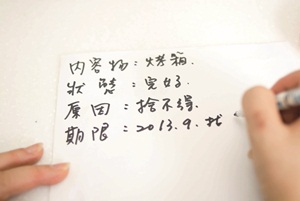 內容物：烤箱.
狀態：完好.
原因：捨不得.
期限：2013.9.